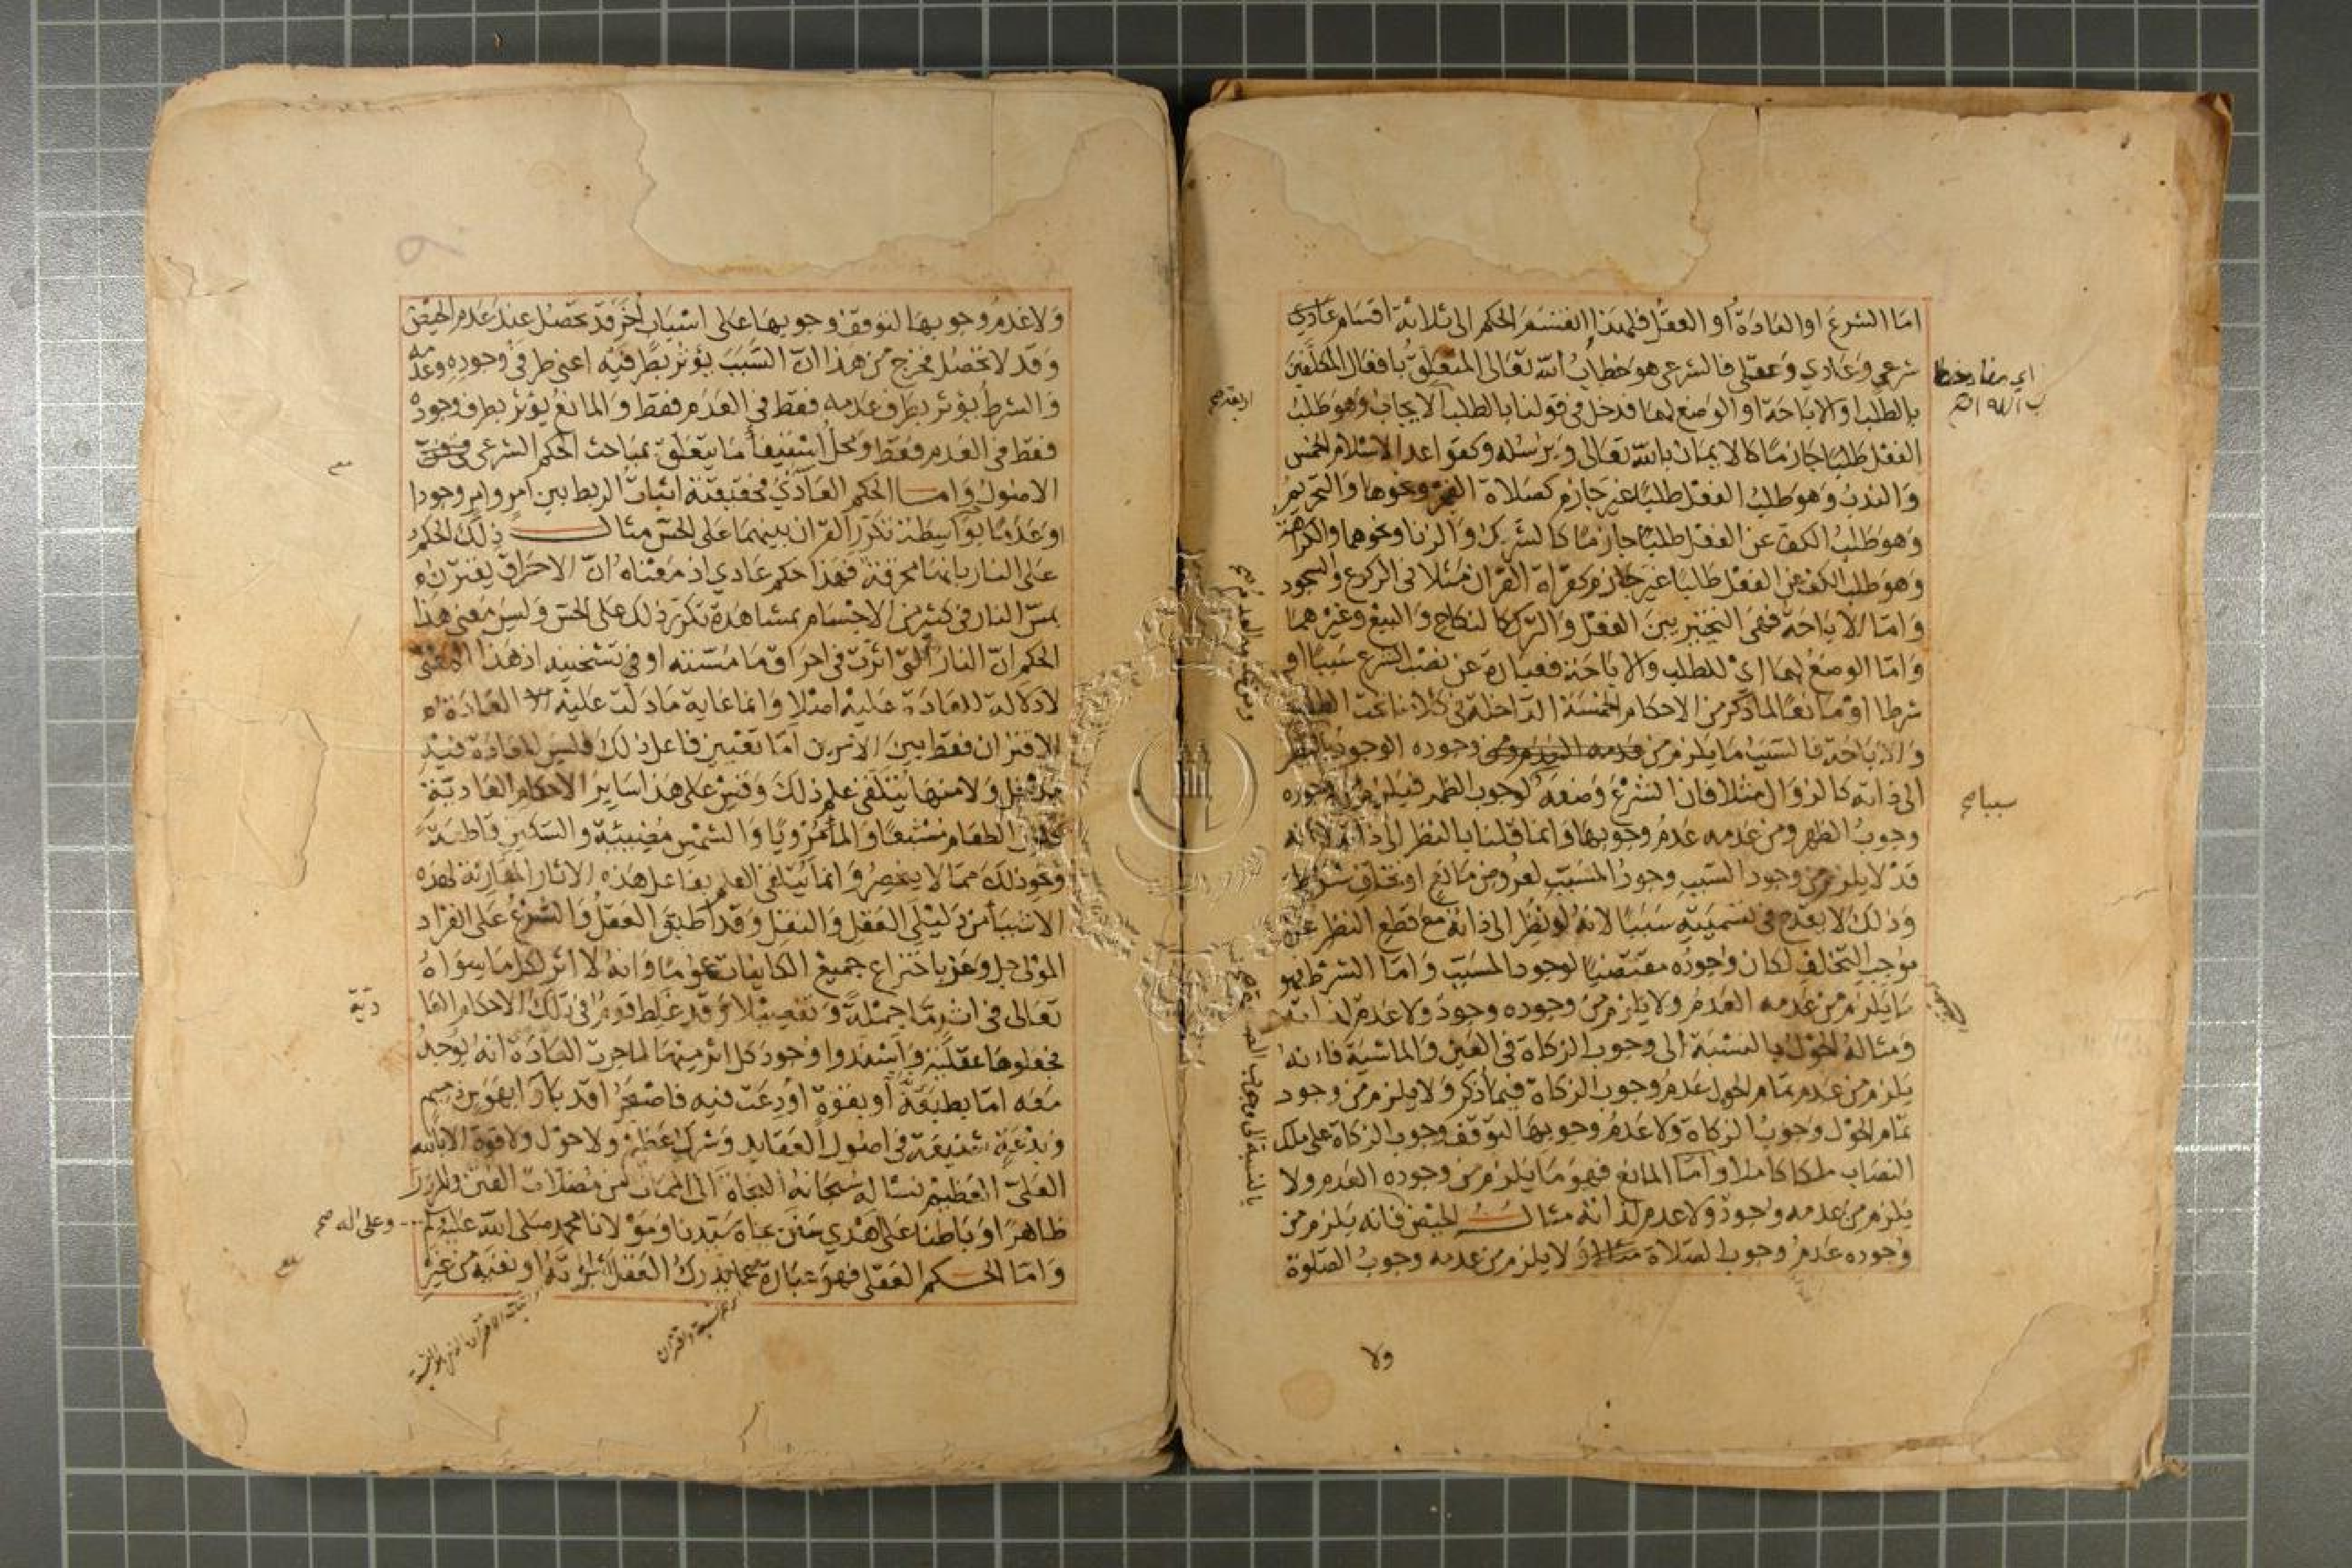 اما الشرع او العادة او العقل فلهذا انقسم الحكم الى ثلاثة اقسام عادي
شرعي وعادي وعقلي فالشرعي هو خطاب الله تعالى المتعلق بافعال المكلفين
بالطلب او الاباحة او الوضع لهما فدخل في قولنا بالطلب الايجاب وهو طلب
الفعل طلبا جازما كالايمان بالله تعالى وبرسله وكقواعد الاسلام الخمس
والندب وهو طلب الفعل طلبا غير جازم كصلاة الفجر ونحوها والتحريم
وهو طلب الكف عن الفعل طلبا جازما كالشرك والزنا ونحوهما والكراهة
وهو طلب الكف عن الفعل طالبا غير جازم كقراة القران مثلا في الركوع والسجود
واما الاباحة فهي التخيير بين الفعل والترك كالنكاح والبيع وغيرهما
واما الوضع لهما اي للطلب والاباحة فعبارة عن نصب الشرع سببا او
شرطا او مانعا لما ذكر من الاحكام الخمسة الداخلة في كلامنا تحت الطلب
والاباحة فالسبب ما يلزم من عدمه العدم ومن وجوده الوجود بالنظر
الى ذاته كالزوال مثلا فان الشرع وضعه لوجوب الظهر فيلزم من وجوده
وجوب الظهر ومن عدمه عدم وجوبها وانما قلنا بالنظر الى ذاته لانه
قد لا يلزم من وجود السبب وجود المسبب لعروض مانع او تخلف شرط
وذلك لا يقدح في تسميته سببا لانه لو نظر الى ذاته مع قطع النظر عن
موجب التخلف لكان وجوده مقتضيا لوجود المسبب واما الشرط فهو
ما يلزم من عدمه العدم ولا يلزم من وجوده وجود ولا عدم لذاته
ومثاله الحول بالنسبة الى وجوب الزكاة في العين والماشية فانه
يلزم من عدم تمام الحول عدم وجوب الزكاة فيما ذكر ولا يلزم من وجود
تمام الحول وجوب الزكاة ولا عدم وجوبها لتوقف وجوب الزكاة على ملك
النصاب ملكا كاملا واما المانع فهو ما يلزم من وجوده العدم ولا
يلزم من عدمه وجود ولا عدم لذاته مثاله الحيض فانه يلزم من
وجوده عدم وجوب الصلاة مثلا ولا يلزم من عدمه وجوب الصلوة
ولا
سببا صح
بالنسبة الى وجوب
ولا عدم وجوبها لتوقف وجوبها على اسباب اخر قد تحصل عند عدم الحيض
وقد لا تحصل فخرج من هذا ان السبب يؤثر بطرفيه اعني طرفي وجوده وعدمه
والشرط يؤثر بطرف عدمه فقط في العدم فقط والمانع يؤثر بطرف وجوده
فقط في العدم فقط ومحل استيفا ما يتعلق بمباحث الحكم الشرعي فن
الاصول واما الحكم العادي فحقيقته اثبات الربط بين امر وامر وجودا
او عدما بواسطة تكرر القران بينهما على الحس مثال ذلك الحكم
على النار بانها محرقة فهذا حكم عادي اذ معناه ان الاحراق يقترن
بمس النار في كثير من الاجسام بمشاهدة تكرر ذلك على الحس وليس معنى هذا
الحكم ان النار التي اثرت في احراق ما مسته او في تسخينه اذ هذا المعنى
لا دلالة للعادة عليه اصلا وانما غاية ما دلت عليه العادة
الاقتران فقط بين الامرين اما تعيين فاعل ذلك فليس للعادة فيه
مدخل ولا منها يتلقى علم ذلك وقس على هذا ساير الاحكام العادية
ككون الطعام مشبعا والماء مرويا والشمس مضيئة والسكين قاطعة
ونحو ذلك مما لا ينحصر وانما يتلقى العلم بفاعل هذه الاثار المقارنة لهذه
الاشيا من دليلي العقل والنقل وقد اطبق العقل والشرع على انفراد
المولى جل وعز باختراع جميع الكاينات عموما وانه لا اثر لكل ما سواه
تعالى في اثر ما جملة وتفصيلا وقد غلط قوم في تلك الاحكام العا
دية
فجعلوها عقلية واسندوا وجود كل اثر منها لما جرت العادة انه يوجد
معه اما بطبعه او بقوة اودعت فيه فاصبحوا وقد باؤا بهوس ذميم
وبدعة شنيعة في اصول العقايد وشرك عظيم ولا حول ولا قوة الا بالله
العلي العظيم نساله سبحانه النجاة الى الممات من مضلات الفتن والمرور
ظاهرا وباطنا على اهدي سنن بجاه سيدنا ومولانا محمد صلى الله عليه وسلم
وعلى اله صح
واما الحكم العقلي فهو عبارة عما يدرك العقل ثبوته او نفيه من غير